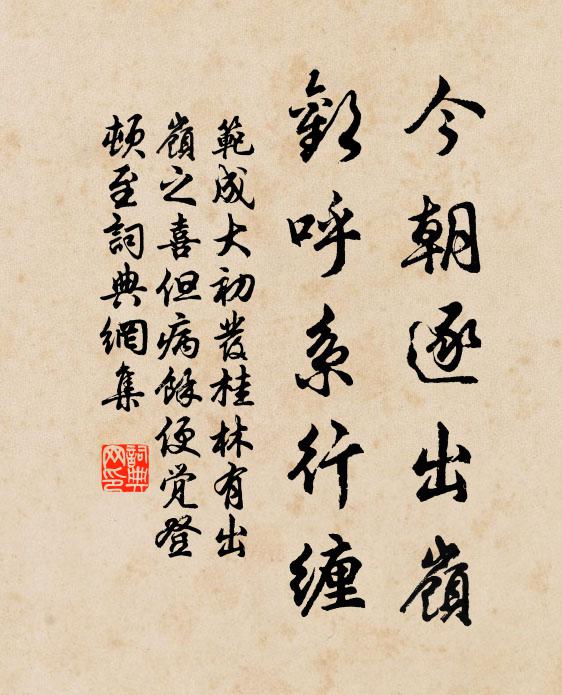 今朝逐出嶺
歡呼系行纏
範成大初發桂林有出
嶺之喜但病餘便覺登
頓至詞典網集
詞典网印